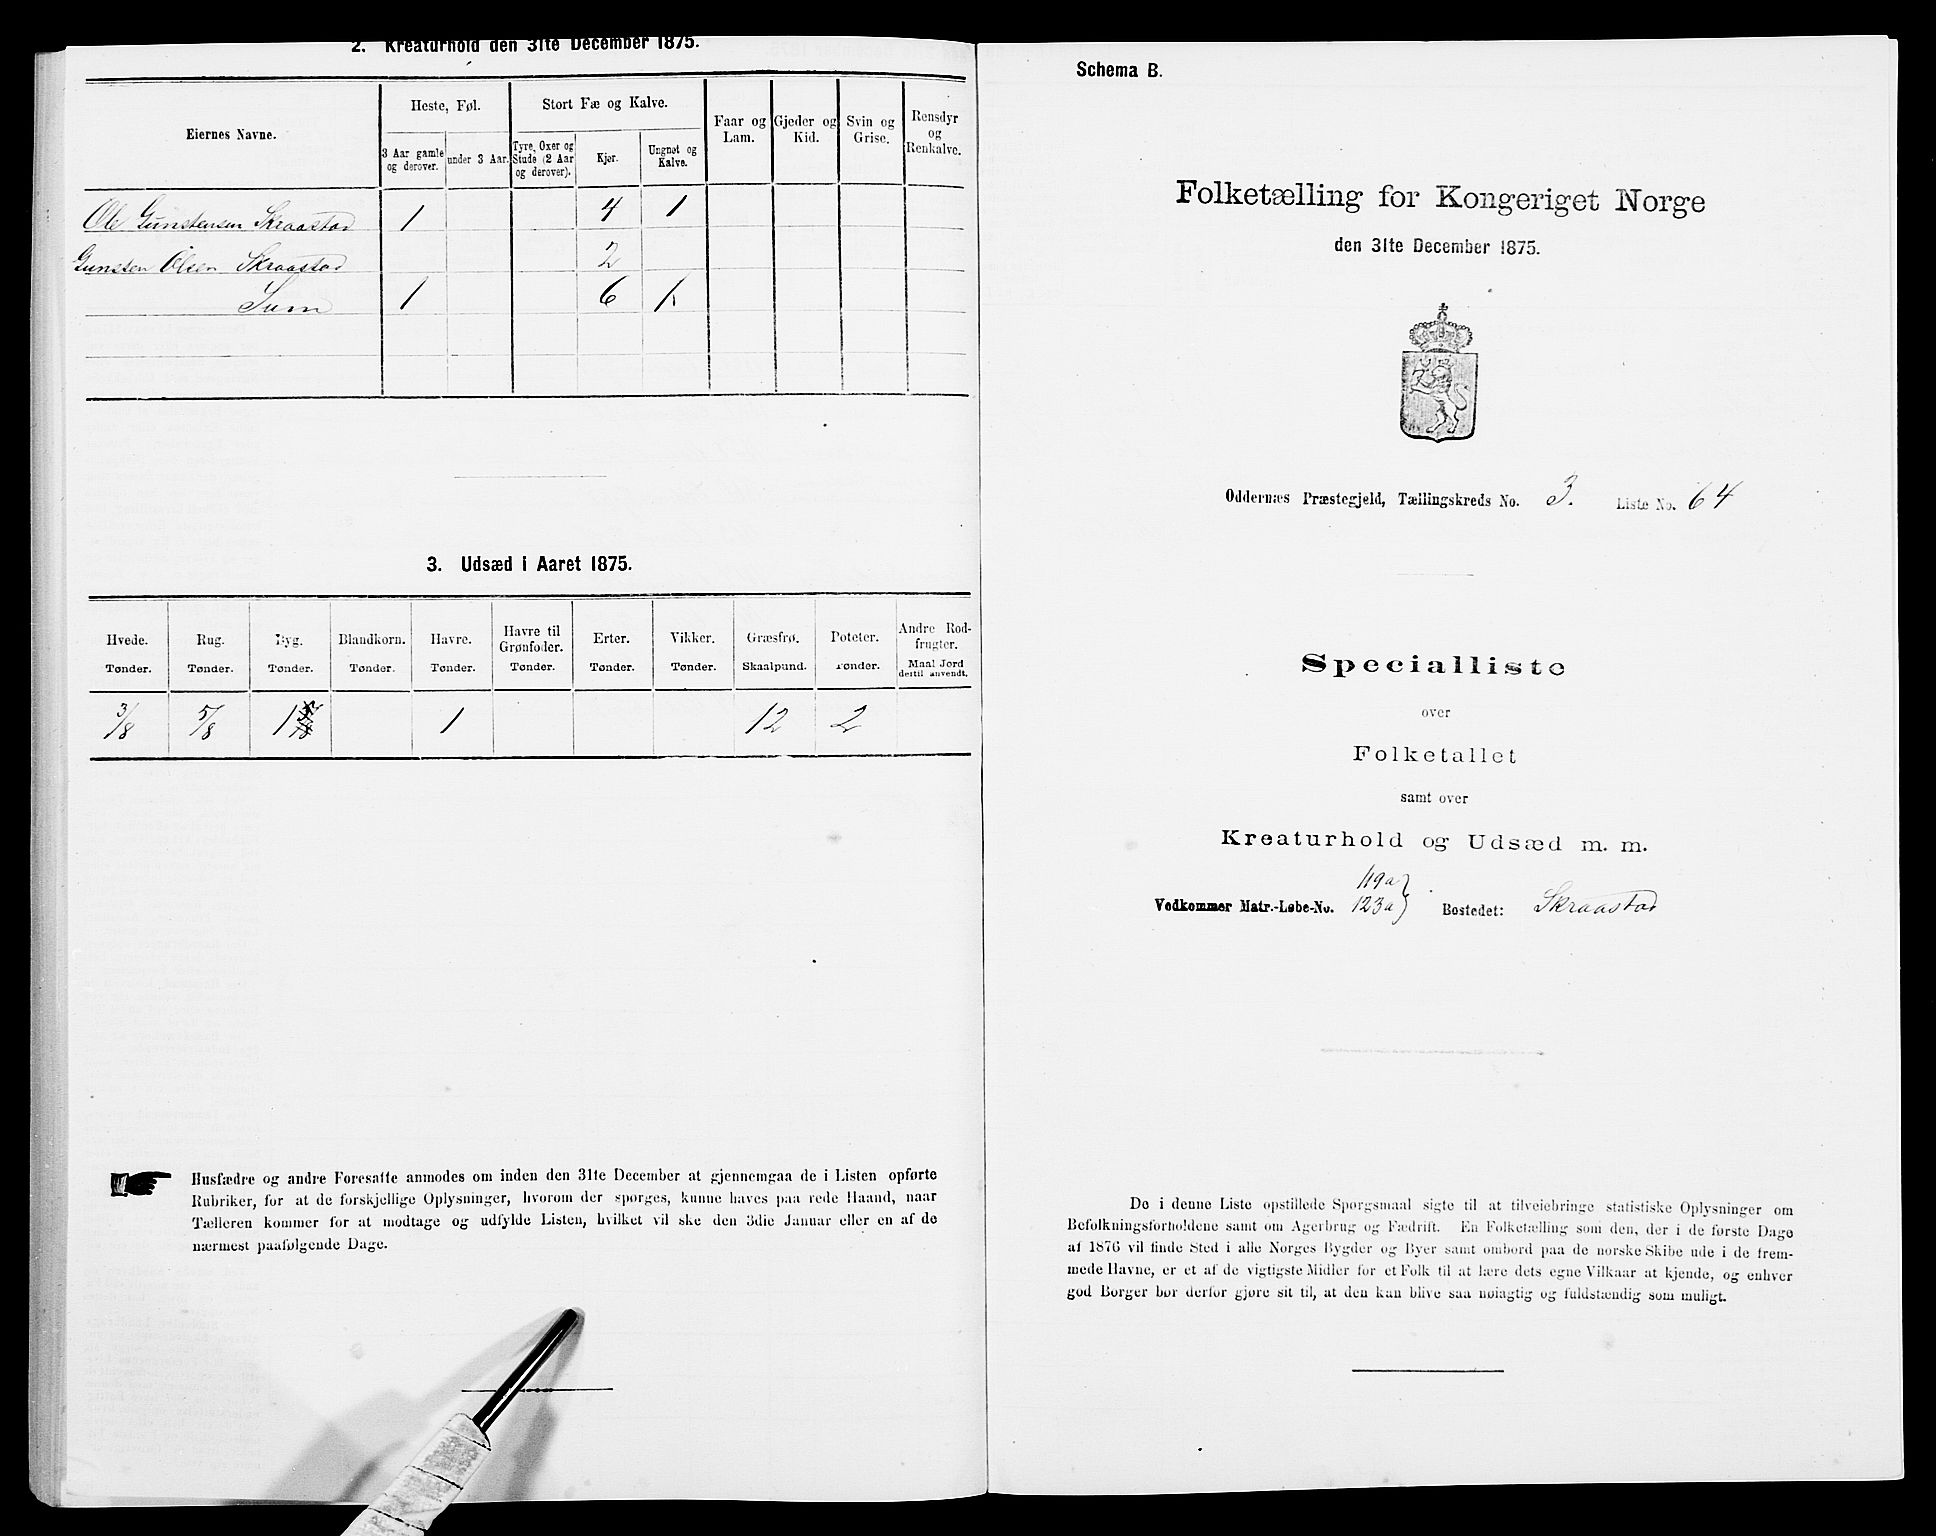 2. Kreaturhold den 31te December 1875.
Eiernes Navne.
Heste, Føl.
3 Aar gamle og derover.
under 3 Aar.
Stort Fæ og Kalve.
Tyre, Oxer og Stude (2 Aar og derover).
Kjør.
Ungnøt og Kalve.
Faar og Lam.
Gjeder og Kid.
Svin og Grise.
Rensdyr og Renkalve.
Ole Gunstensen Skraastad 1 4 1
Gunsten Olsen Skraastad 2
Sum 1 6 1
3. Udsæd i Aaret 1875.
Hvede. Rug. Byg. Blandkorn. Havre. Havre til Grønfoder. Erter. Vikker. Græsfrø. Poteter. Andre Rodfrugter.
Tønder. Tønder. Tønder. Tønder. Tønder. Tønder. Tønder. Tønder. Skaalpund. Tønder. Maal Jord dertil anvendt.
3/8 5/8 1 1 12 2
Husfædre og andre Foresatte anmodes om inden den 31te December at gjennemgaa de i Listen opførte
Rubriker, for at de forskjellige Oplysninger, hvorom der spørges, kunne haves paa rede Haand, naar
Tælleren kommer for at modtage og udfylde Listen, hvilket vil ske den 3die Januar eller en af de
nærmest paafølgende Dage.
Schema B.
Folketælling for Kongeriget Norge
den 31te December 1875.
Oddernæs Præstegjeld, Tællingskreds No. 3. Liste No. 64
Specialliste
over
Folketallet
samt over
Kreaturhold og Udsæd m. m.
119a
Vedkommer Matr.-Løbe-No. 123a Bostedet: Skraastad
De i denne Liste opstillede Spørgsmaal sigte til at tilveiebringe statistiske Oplysninger om
Befolkningsforholdene samt om Agerbrug og Fædrift. En Folketælling som den, der i de første Dage
af 1876 vil finde Sted i alle Norges Bygder og Byer samt ombord paa de norske Skibe ude i de frem-
mede Havne, er et af de vigtigste Midler for et Folk til at lære dets egne Vilkaar at kjende, og enhver
god Borger bør derfor gjøre sit til, at den kan blive saa nøiagtig og fuldstændig som muligt.